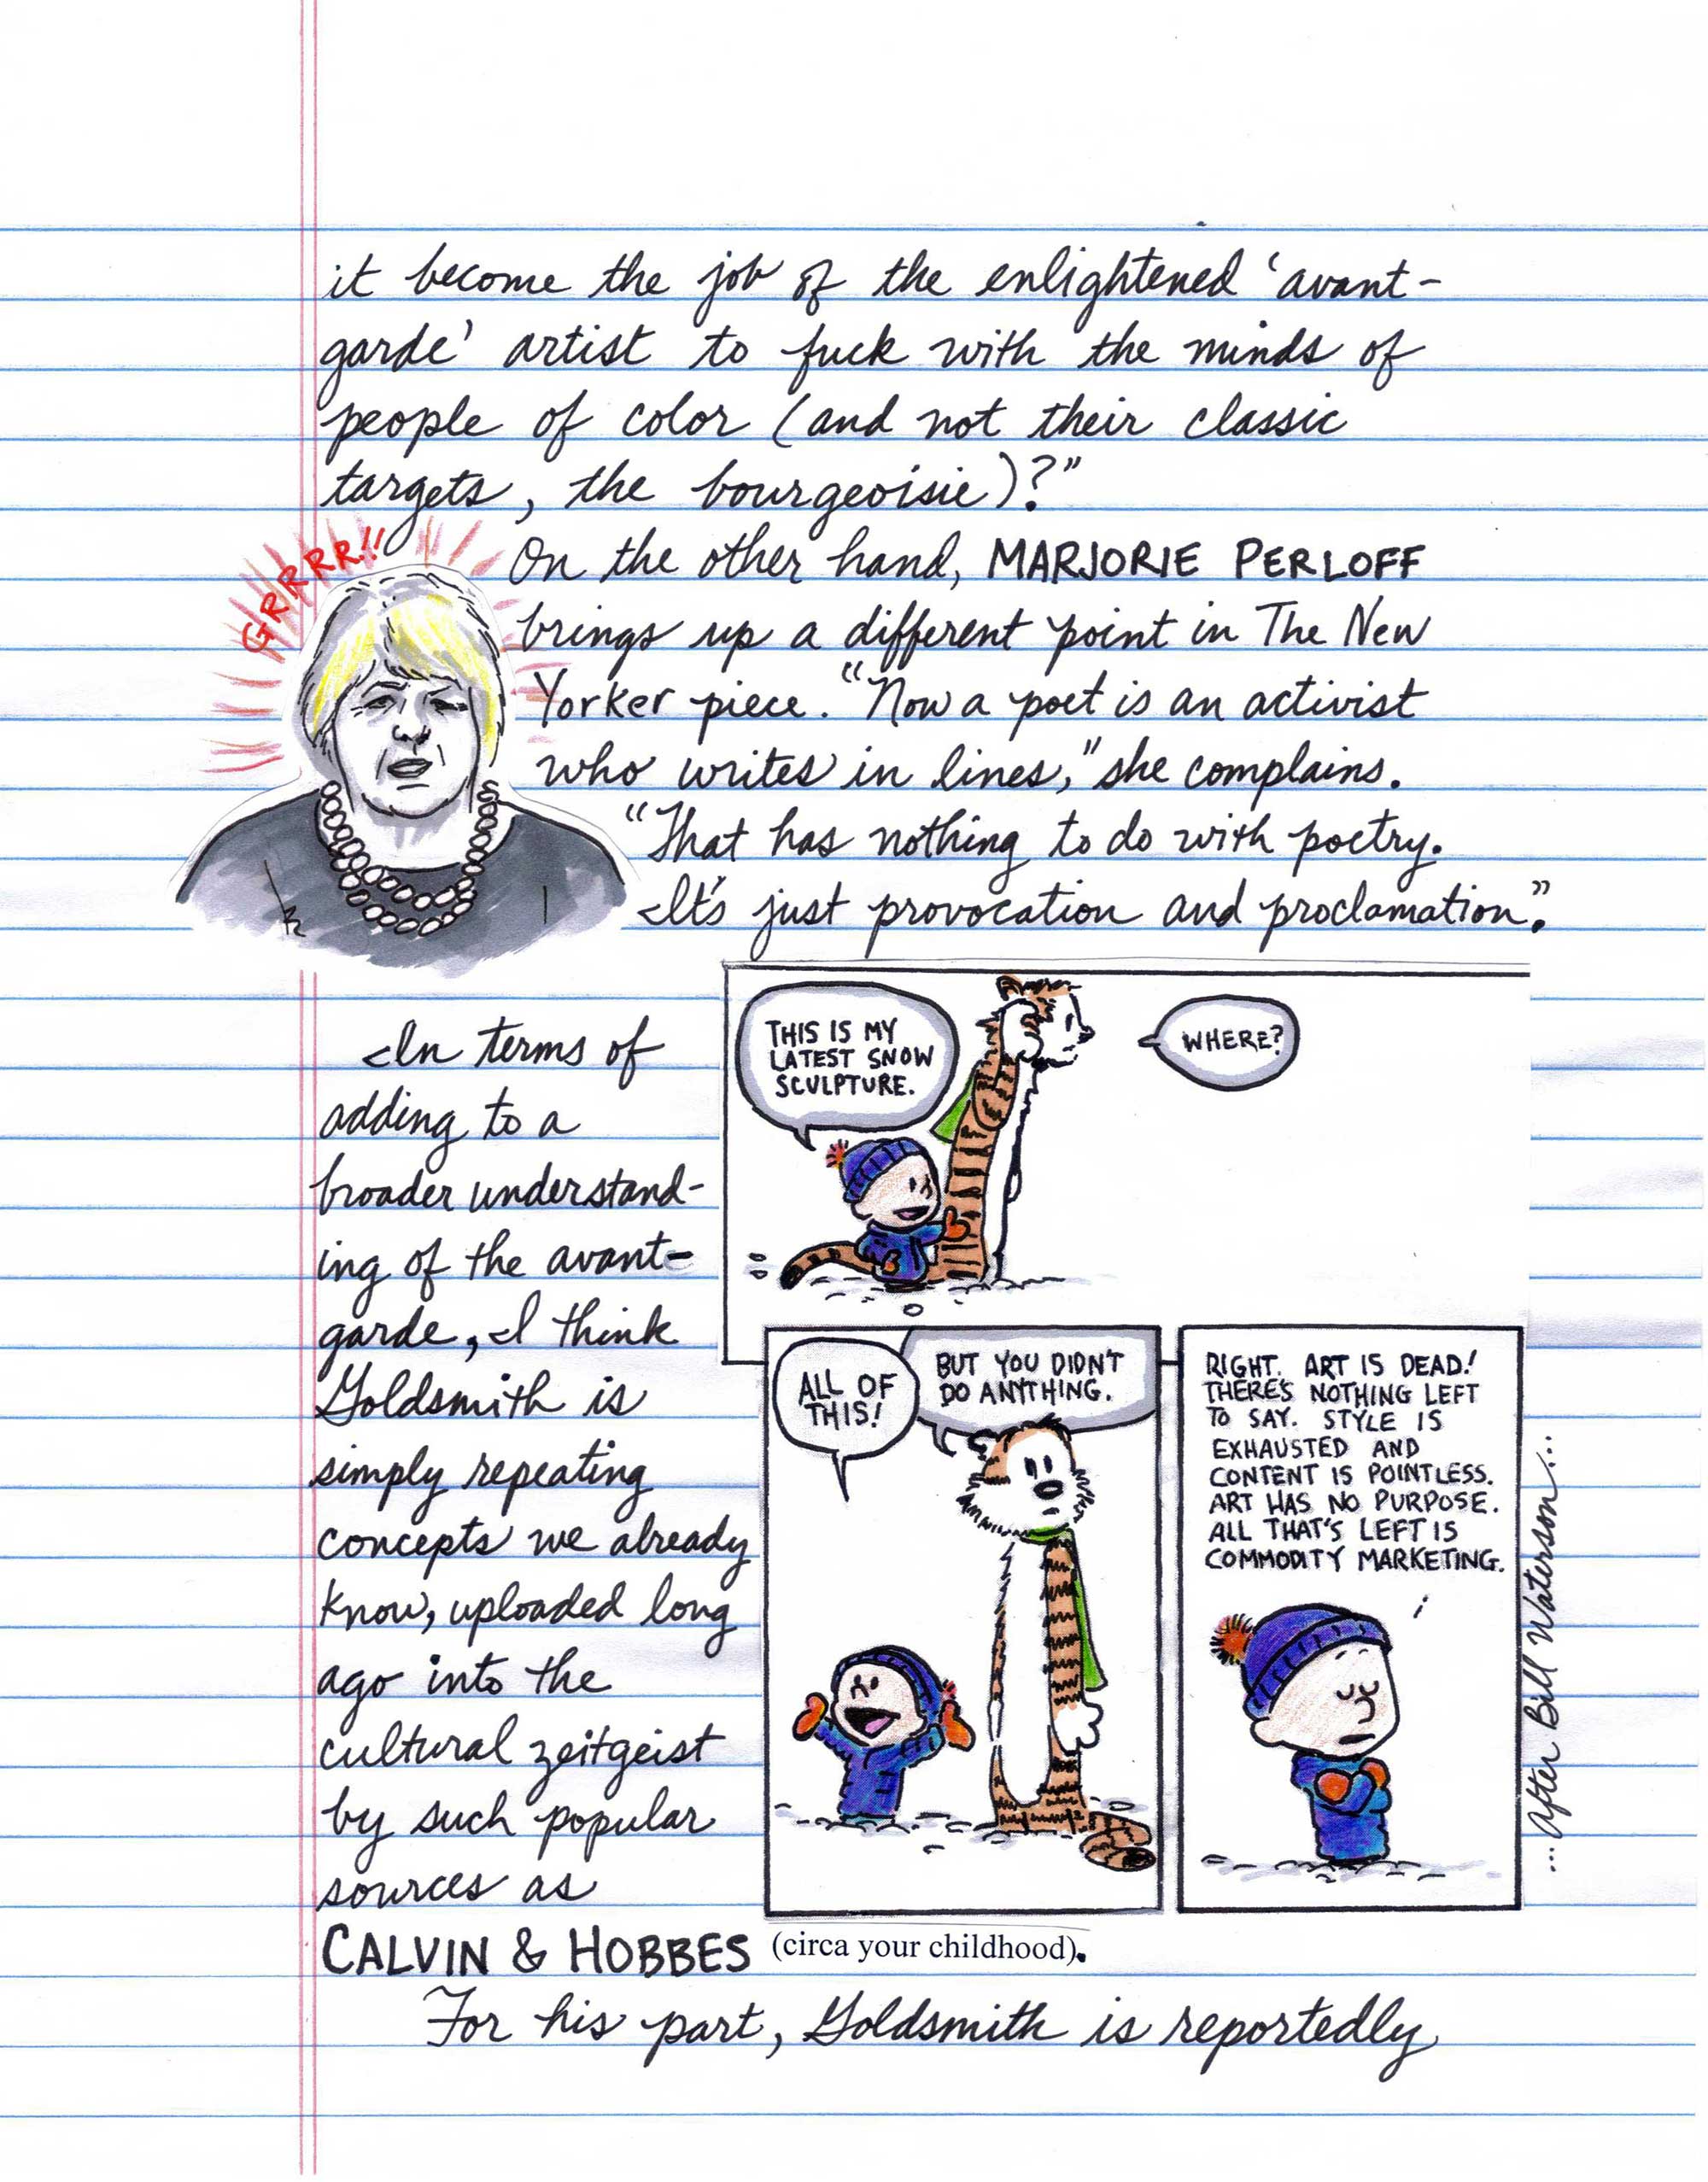 it become the job of the enlightened 'avant-
garde' artist to fuck with the minds of
people of color (and not their classic
targets, the bourgeoisie)?"
GRRRR!!
On the other hand, MARJORIE PERLOFF
brings up a different point in The New
Yorker piece. "Now a poet is an activist
who writes in lines," she complains.
"That has nothing to do with poetry.
It's just provocation and proclamation."
In terms of
adding to a
broader understand-
ing of the avant-
garde, I think
Goldsmith is
simply repeating
concepts we already
know, uploaded long
ago into the
cultural zeitgeist
by such popular
sources as
CALVIN & HOBBES (circa your childhood).
THIS IS MY
LATEST SNOW
SCULPTURE.
WHERE?
ALL OF
THIS!
BUT YOU DIDN'T
DO ANYTHING.
RIGHT. ART IS DEAD!
THERE'S NOTHING LEFT
TO SAY. STYLE IS
EXHAUSTED AND
CONTENT IS POINTLESS.
ART HAS NO PURPOSE.
ALL THAT'S LEFT IS
COMMODITY MARKETING.
...After Bill Waterson...
For his part, Goldsmith is reportedly